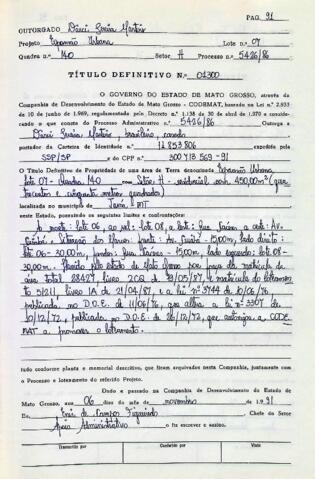 PAG. 91
OUTORGADO Darci Pereira Martins
Projeto Expansão Urbana Lote n.º 07
Quadra n.º 140 Setor H Processo n.º 5426/86
TÍTULO DEFINITIVO N.º 01300
O GOVERNO DO ESTADO DE MATO GROSSO, através da
Companhia de Desenvolvimento do Estado de Mato Grosso - CODEMAT, baseado na Lei n.º 2.933
de 10 de junho de 1.969, regulamentada pelo Decreto n.º 1.138 de 30 de abril de 1.970 e consi-
derando o que consta do Processo Administrativo 5426/86 Outorga a
Darci Pereira Martins, brasileiro, casado
portador da Carteira de Identidade n.º 12.853806 expedida pela
SSP/SP e do CPF n.º 300 713 569-91
O Título Definitivo de Propriedade de uma área de Terra denominada Expansão Urbana
Lote 07 - Quadra 140 com Setor H - residencial com 450,00m² (qua
trocentos e cinquenta metros quadrados)
localizado no município de MT
neste Estado, possuindo os seguintes limites e confrontações:
ao norte: Lote 06, ao sul: Lote 08, a leste: Rua a oeste: Av.
frente: Av. 15,00m, lado direito:
lote 06 - 30,00m, fundos: Rua - 15,00m, lado esquerdo: lote 08 -
30,00m. pelo estado de Mato Grosso por da matrícula de
área total 28427, livro 2CQ de /05/87, e matrícula do loteamento
51211, livro 1A de 21/04/87, e a lei nº 3744 de 10/06/76,
publicada no D.O.E. de 11/06/76, que altera a lei nº 3307 de
10/12/72, publicada no D.O.E. de 12/72, que autoriza a CODE
MAT a promover o loteamento.
tudo conforme planta e memorial descritivo, que ficam arquivados nesta Companhia, juntamente com
o Processo e loteamento do referido Projeto.
Dado e passado na Companhia de Desenvolvimento do Estado de
Mato Grosso, aos 06 dias do mês de novembro de 1.991
Eu, de Campos Figueiredo Chefe do Setor
Apoio Administrativo o fiz escrever e assino.
Transcrito por Conferido por Visto